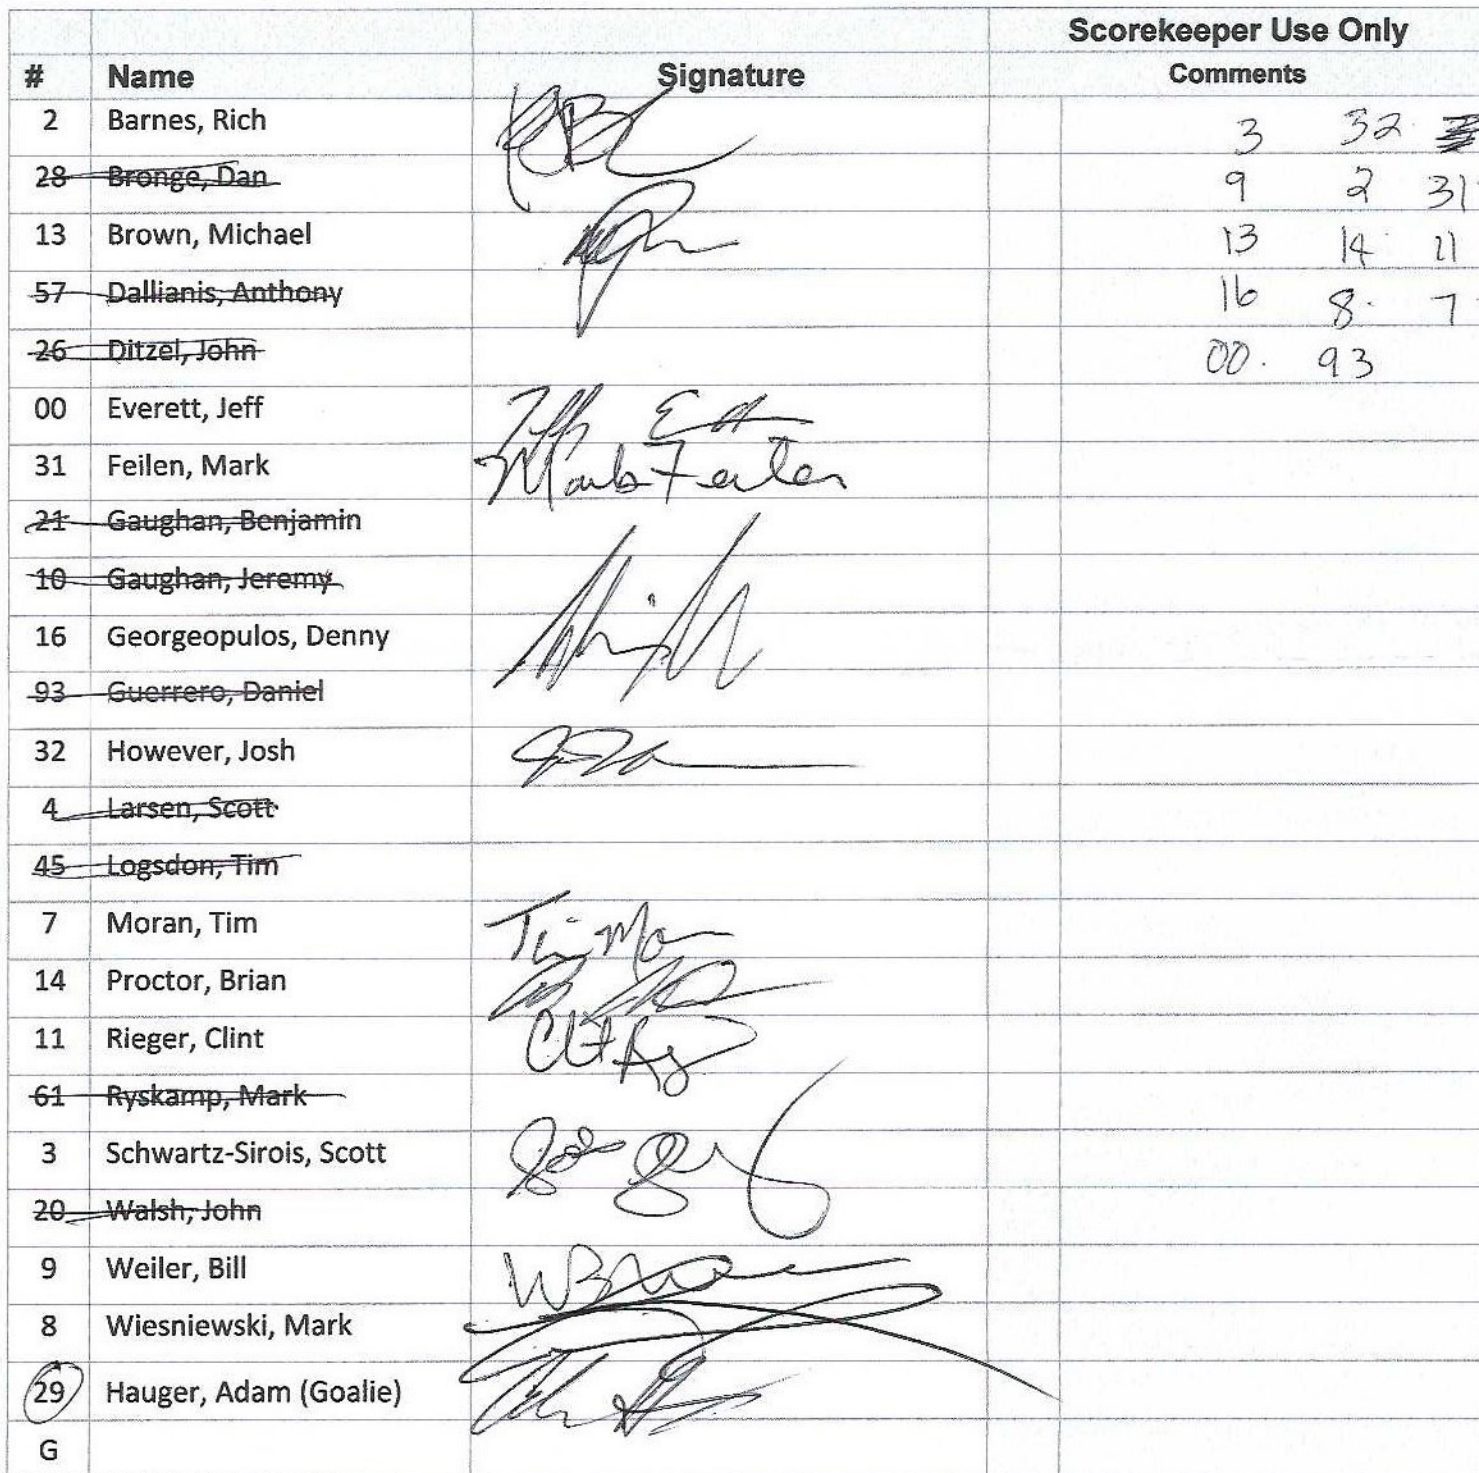 Scorekeeper Use Only
# Name Signature Comments
2 Barnes, Rich 3 32
28 Bronge, Dan 9 2 31
13 Brown, Michael 13 14 11
57 Dallianis, Anthony 16 8 7
26 Ditzel, John 00 93
00 Everett, Jeff
31 Feilen, Mark
21 Gaughan, Benjamin
10 Gaughan, Jeremy
16 Georgeopulos, Denny
93 Guerrero, Daniel
32 However, Josh
4 Larsen, Scott
45 Logsdon, Tim
7 Moran, Tim
14 Proctor, Brian
11 Rieger, Clint
61 Ryskamp, Mark
3 Schwartz-Sirois, Scott
20 Walsh, John
9 Weiler, Bill
8 Wiesniewski, Mark
29 Hauger, Adam (Goalie)
G